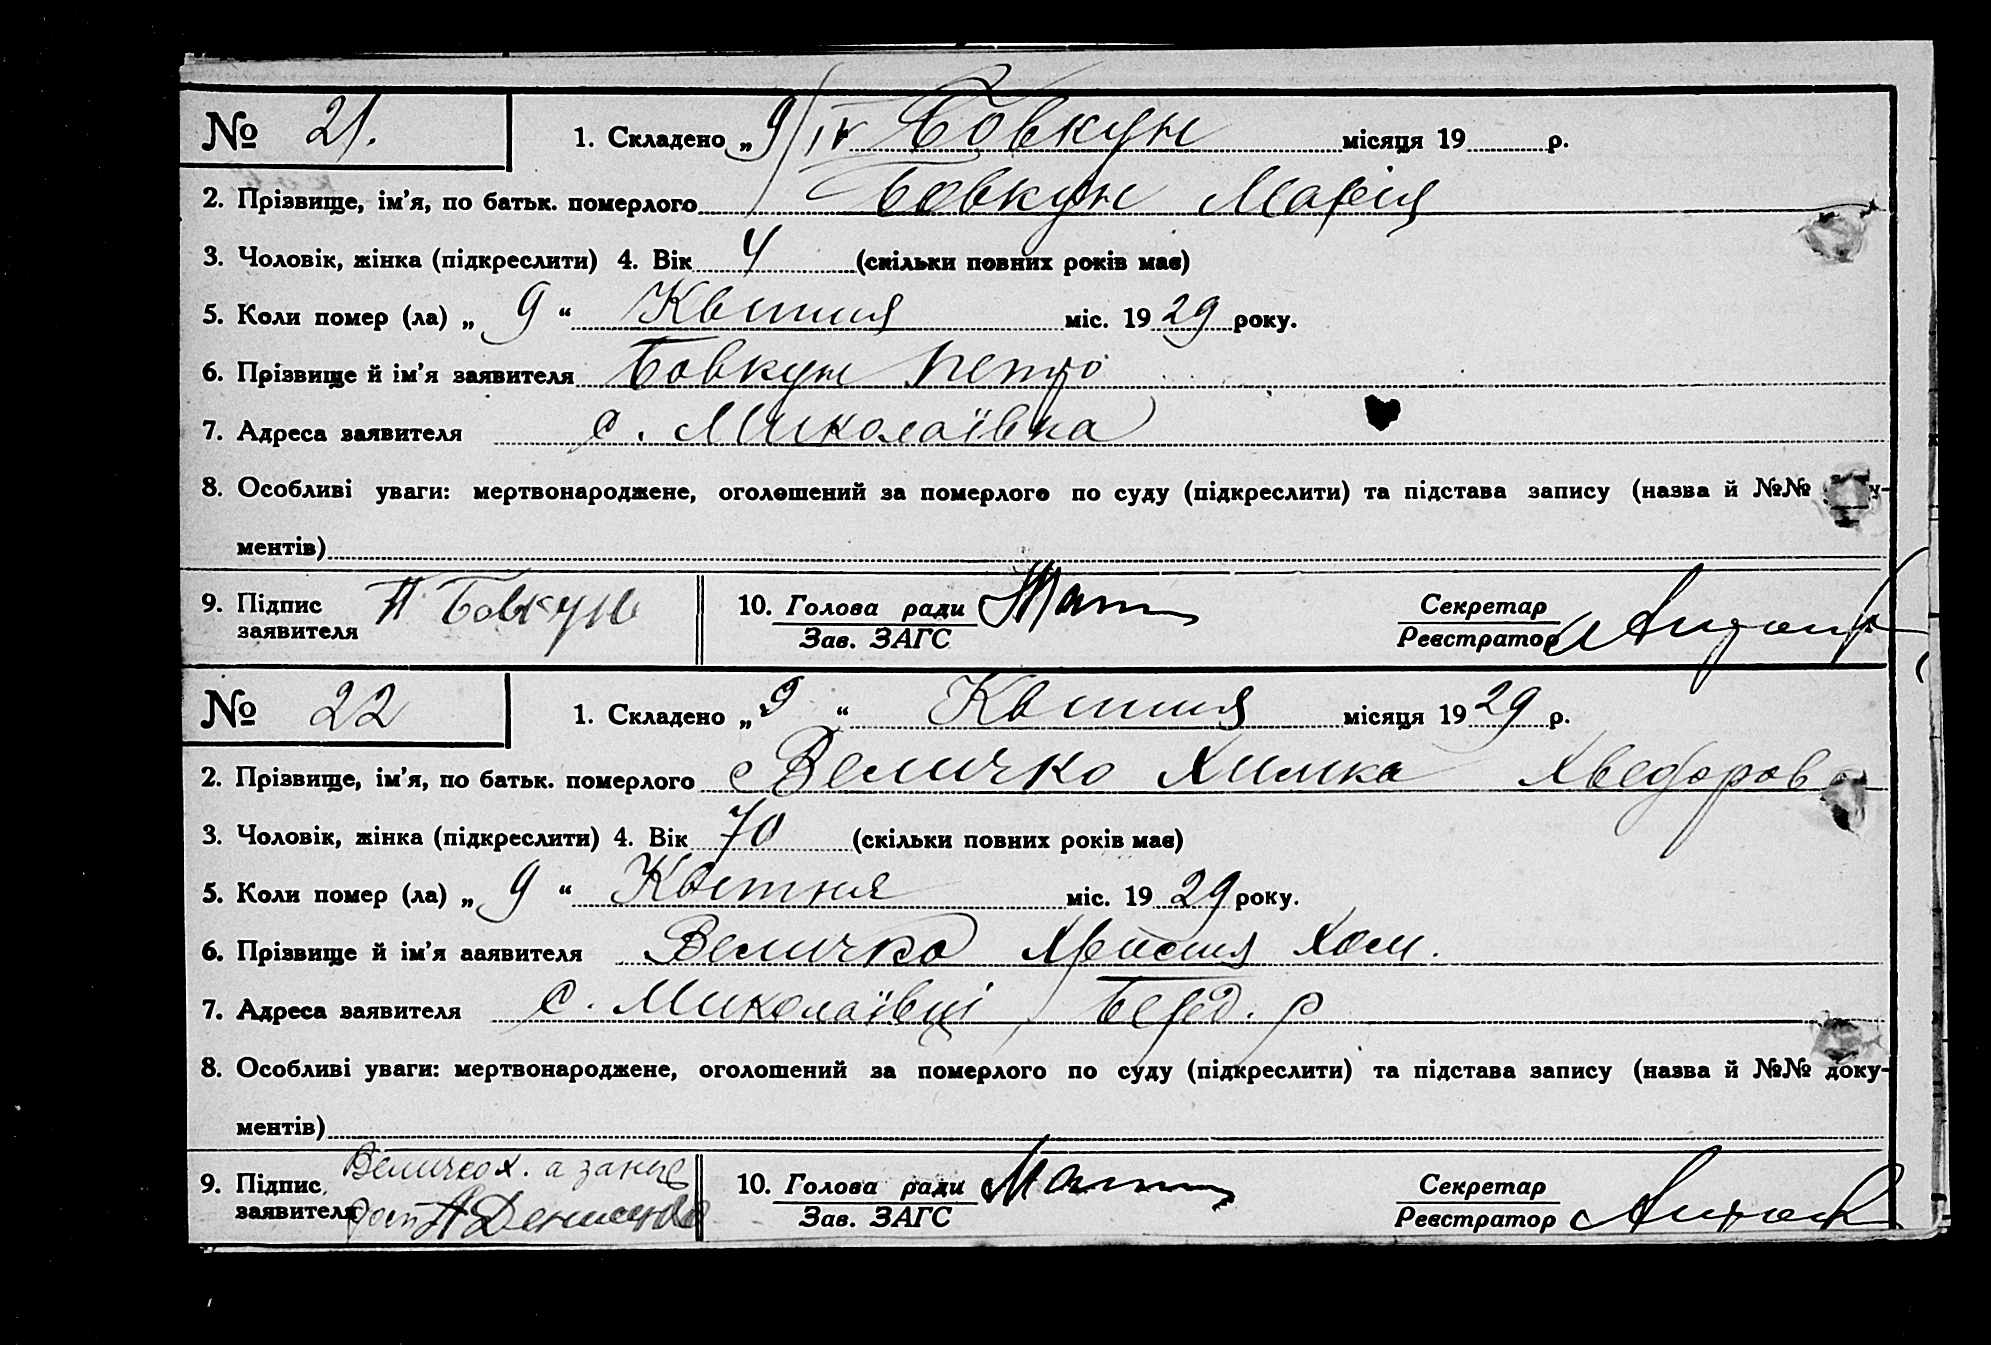 № 21. 1. Складено „ 9/IV Бовкун місяця 19 р.
2. Прізвище, ім’я, по батьк. померлого Бовкун Марія
3. Чоловік, жінка (підкреслити) 4. Вік 4 (скільки повних років має)
5. Коли помер (ла) „ 9 “ Квитня міс. 19 29 року.
6. Прізвище й ім’я заявителя Бовкун Петро
7. Адреса заявителя с. Миколаївка
8. Особливі уваги: мертвонароджене, оголошений за померлого по суду (підкреслити) та підстава запису (назва й №№
ментів)
9. Підпис заявителя П Бовкун 10. Голова ради Зав. ЗАГС Секретар Реєстратор
№ 22 1. Складено „ 9 “ Квитня місяця 19 29 р.
2. Прізвище, ім’я, по батьк. померлого Величко Химка Хведоров
3. Чоловік, жінка (підкреслити) 4. Вік 70 (скільки повних років має)
5. Коли помер (ла) „ 9 “ Квитня міс. 19 29 року.
6. Прізвище й ім’я заявителя Величко Хом.
7. Адреса заявителя с. Миколаївці Берд. р
8. Особливі уваги: мертвонароджене, оголошений за померлого по суду (підкреслити) та підстава запису (назва й №№ доку-
ментів)
9. Підпис заявителя Величко Х. а за 10. Голова ради Зав. ЗАГС Секретар Реєстратор